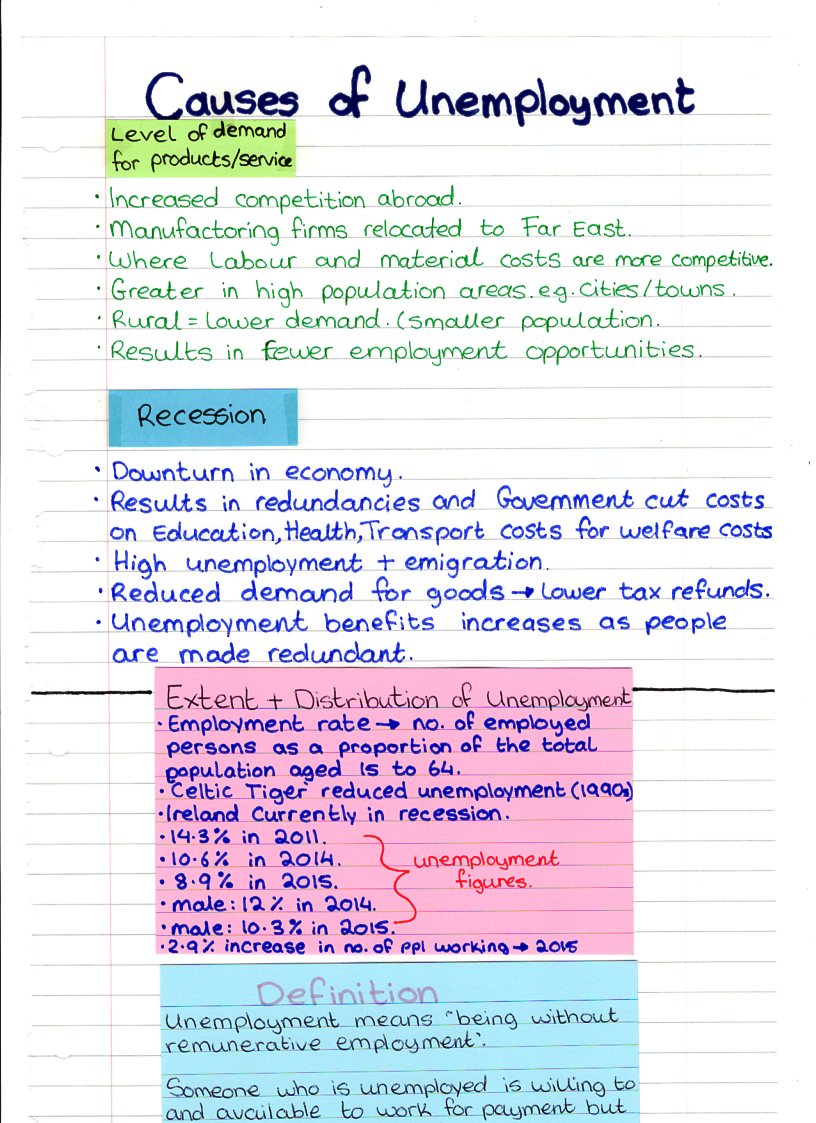 Causes of Unemployment
Level of demand
for products/service
· Increased competition abroad.
· Manufactoring firms relocated to Far East.
· Where Labour and material costs are more competitive.
· Greater in high population areas. e.g. Cities/towns.
· Rural = lower demand. (smaller population.
· Results in fewer employment opportunities.
Recession
· Downturn in economy.
· Results in redundancies and Government cut costs
on Education, Health, Transport costs for welfare costs
· High unemployment + emigration.
· Reduced demand for goods → lower tax refunds.
· Unemployment benefits increases as people
are made redundant.
Extent + Distribution of Unemployment
· Employment rate → no. of employed
persons as a proportion of the total
population aged 15 to 64.
· 'Celtic Tiger' reduced unemployment (1990s)
· Ireland Currently in recession.
· 14.3% in 2011.
· 10.6% in 2014.
· 8.9% in 2015.
· male: 12% in 2014.
· male: 10.3% in 2015.
unemployment
figures.
· 2.9% increase in no. of ppl working → 2015
Definition
Unemployment means "being without
remunerative employment".
Someone who is unemployed is willing to
and available to work for payment but